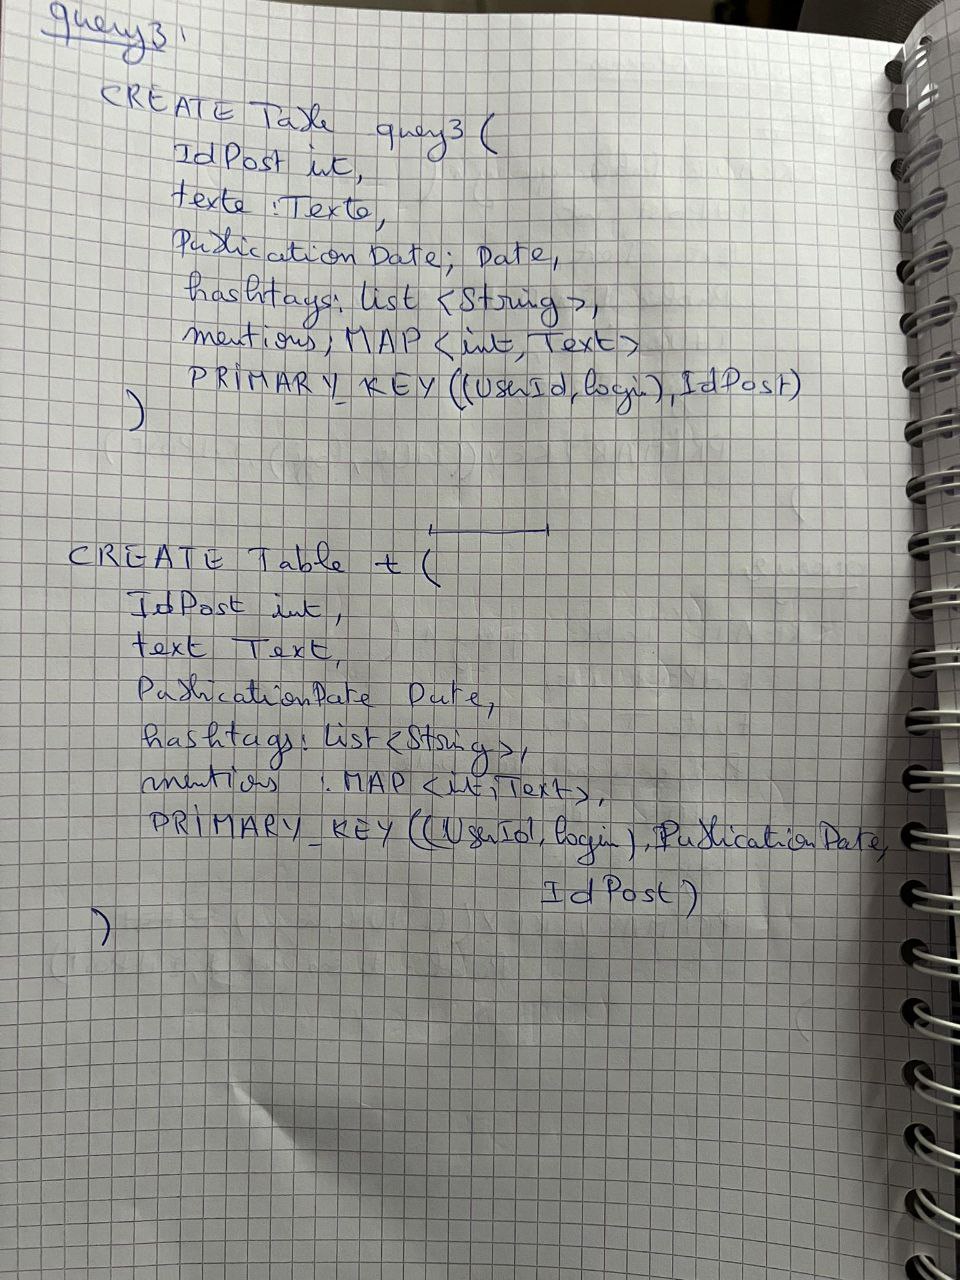 query3:
CREATE Table query3 (
IdPost int,
texte : Texte,
Publication Date; Date,
hashtags: list <String>,
mentions; MAP <int, Text>
PRIMARY_KEY ((UserId, login), IdPost)
)
CREATE Table t (
IdPost int,
text Text,
PublicationDate Date,
hashtags: list <String>,
mentions : MAP <int, Text>,
PRIMARY_KEY ((UserId, login), PublicationDate,
IdPost)
)